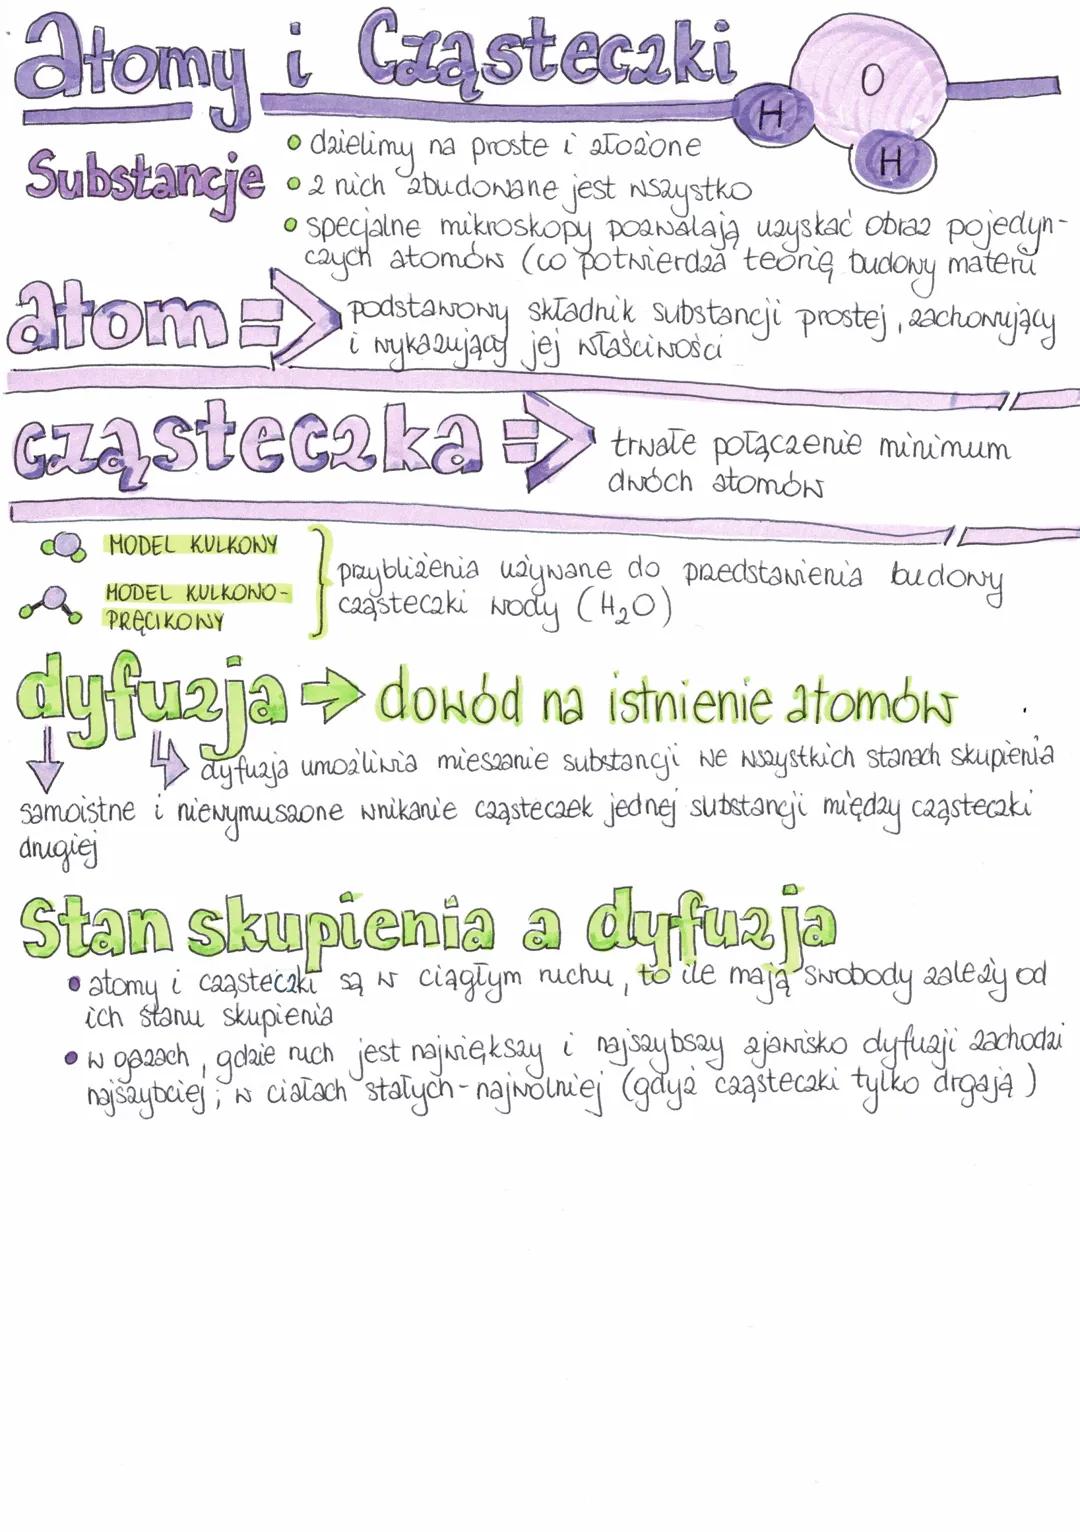 Atomy i Cząsteczki
H
O
H
Substancje
• dzielimy na proste i złożone
• z nich zbudowane jest wszystko
• specjalne mikroskopy pozwalają uzyskać obraz pojedyn-
czych atomów (co potwierdza teorię budowy materii
atom =>
podstawowy składnik substancji prostej, zachowujący
i wykazujący jej właściwości
cząsteczka =>
trwałe połączenie minimum
dwóch atomów
MODEL KULKOWY
MODEL KULKOWO-
PRĘCIKOWY
przybliżenia używane do przedstawienia budowy
cząsteczki wody (H₂O)
dyfuzja → dowód na istnienie atomów
dyfuzja umożliwia mieszanie substancji we wszystkich stanach skupienia
samoistne i niewymuszone wnikanie cząsteczek jednej substancji między cząsteczki
drugiej
Stan skupienia a dyfuzja
• atomy i cząsteczki są w ciągłym ruchu, to ile mają swobody zależy od
ich stanu skupienia
• w gazach, gdzie ruch jest największy i najszybszy zjawisko dyfuzji zachodzi
najszybciej; w ciałach stałych - najwolniej (gdyż cząsteczki tylko drgają)